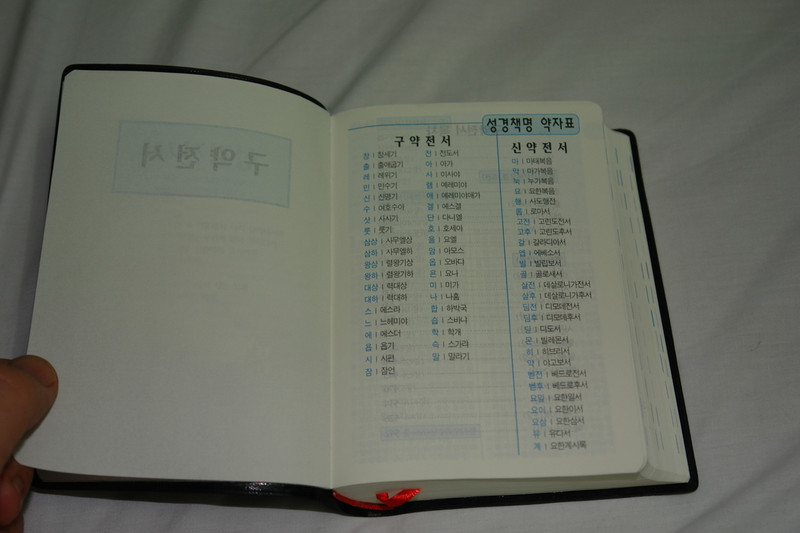 성경책명 약자표
구약전서
창 | 창세기
출 | 출애굽기
레 | 레위기
민 | 민수기
신 | 신명기
수 | 여호수아
삿 | 사사기
룻 | 룻기
삼상 | 사무엘상
삼하 | 사무엘하
왕상 | 렬왕기상
왕하 | 렬왕기하
대상 | 력대상
대하 | 력대하
스 | 에스라
느 | 느헤미야
에 | 에스더
욥 | 욥기
시 | 시편
잠 | 잠언
전 | 전도서
아 | 아가
사 | 이사야
렘 | 예레미야
애 | 예레미야애가
겔 | 에스겔
단 | 다니엘
호 | 호세아
욜 | 요엘
암 | 아모스
옵 | 오바댜
욘 | 요나
미 | 미가
나 | 나훔
합 | 하박국
습 | 스바냐
학 | 학개
슥 | 스가랴
말 | 말라기
신약전서
마 | 마태복음
막 | 마가복음
눅 | 누가복음
요 | 요한복음
행 | 사도행전
롬 | 로마서
고전 | 고린도전서
고후 | 고린도후서
갈 | 갈라디아서
엡 | 에베소서
빌 | 빌립보서
골 | 골로새서
살전 | 데살로니가전서
살후 | 데살로니가후서
딤전 | 디모데전서
딤후 | 디모데후서
딛 | 디도서
몬 | 빌레몬서
히 | 히브리서
약 | 야고보서
벧전 | 베드로전서
벧후 | 베드로후서
요일 | 요한일서
요이 | 요한이서
요삼 | 요한삼서
유 | 유다서
계 | 요한계시록